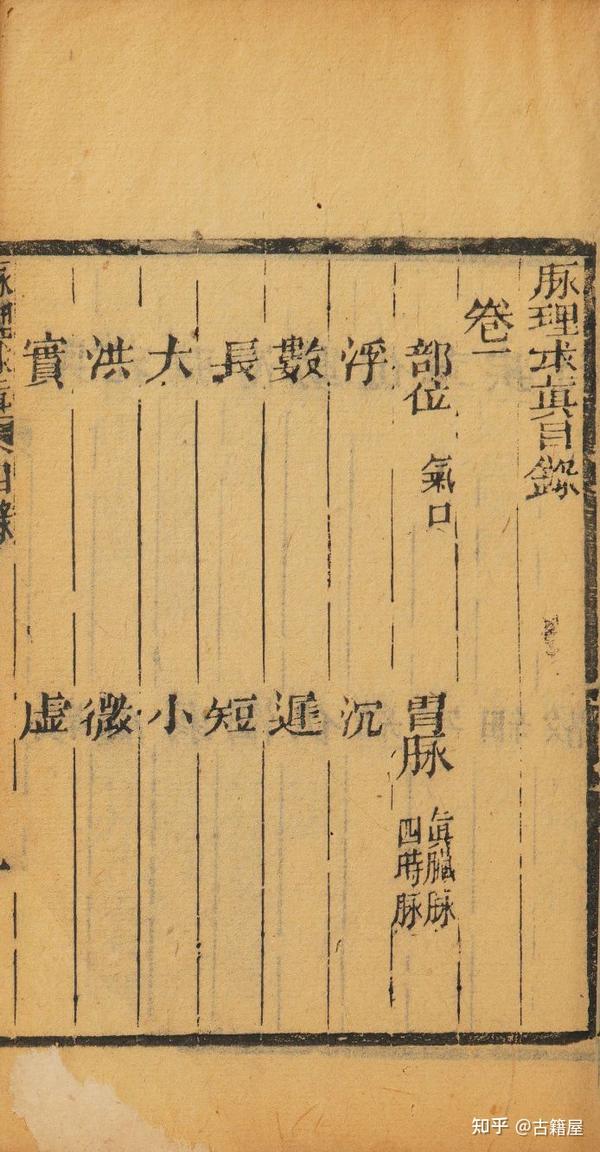 脉理求真目錄
卷一
部位 氣口 胃脉 眞臟脉 四時脉
浮 沉
數 遲
長 短
大 小
洪 微
實 虛
脉理求眞 目錄
知乎 @古籍屋